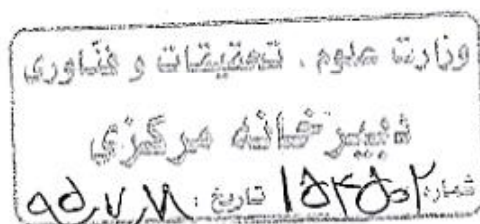 وزارت علوم ، تحقیقات و فنّاوری
دبیرخانه مرکزی
شماره: ۱۵۴۵۰۲ تاریخ: